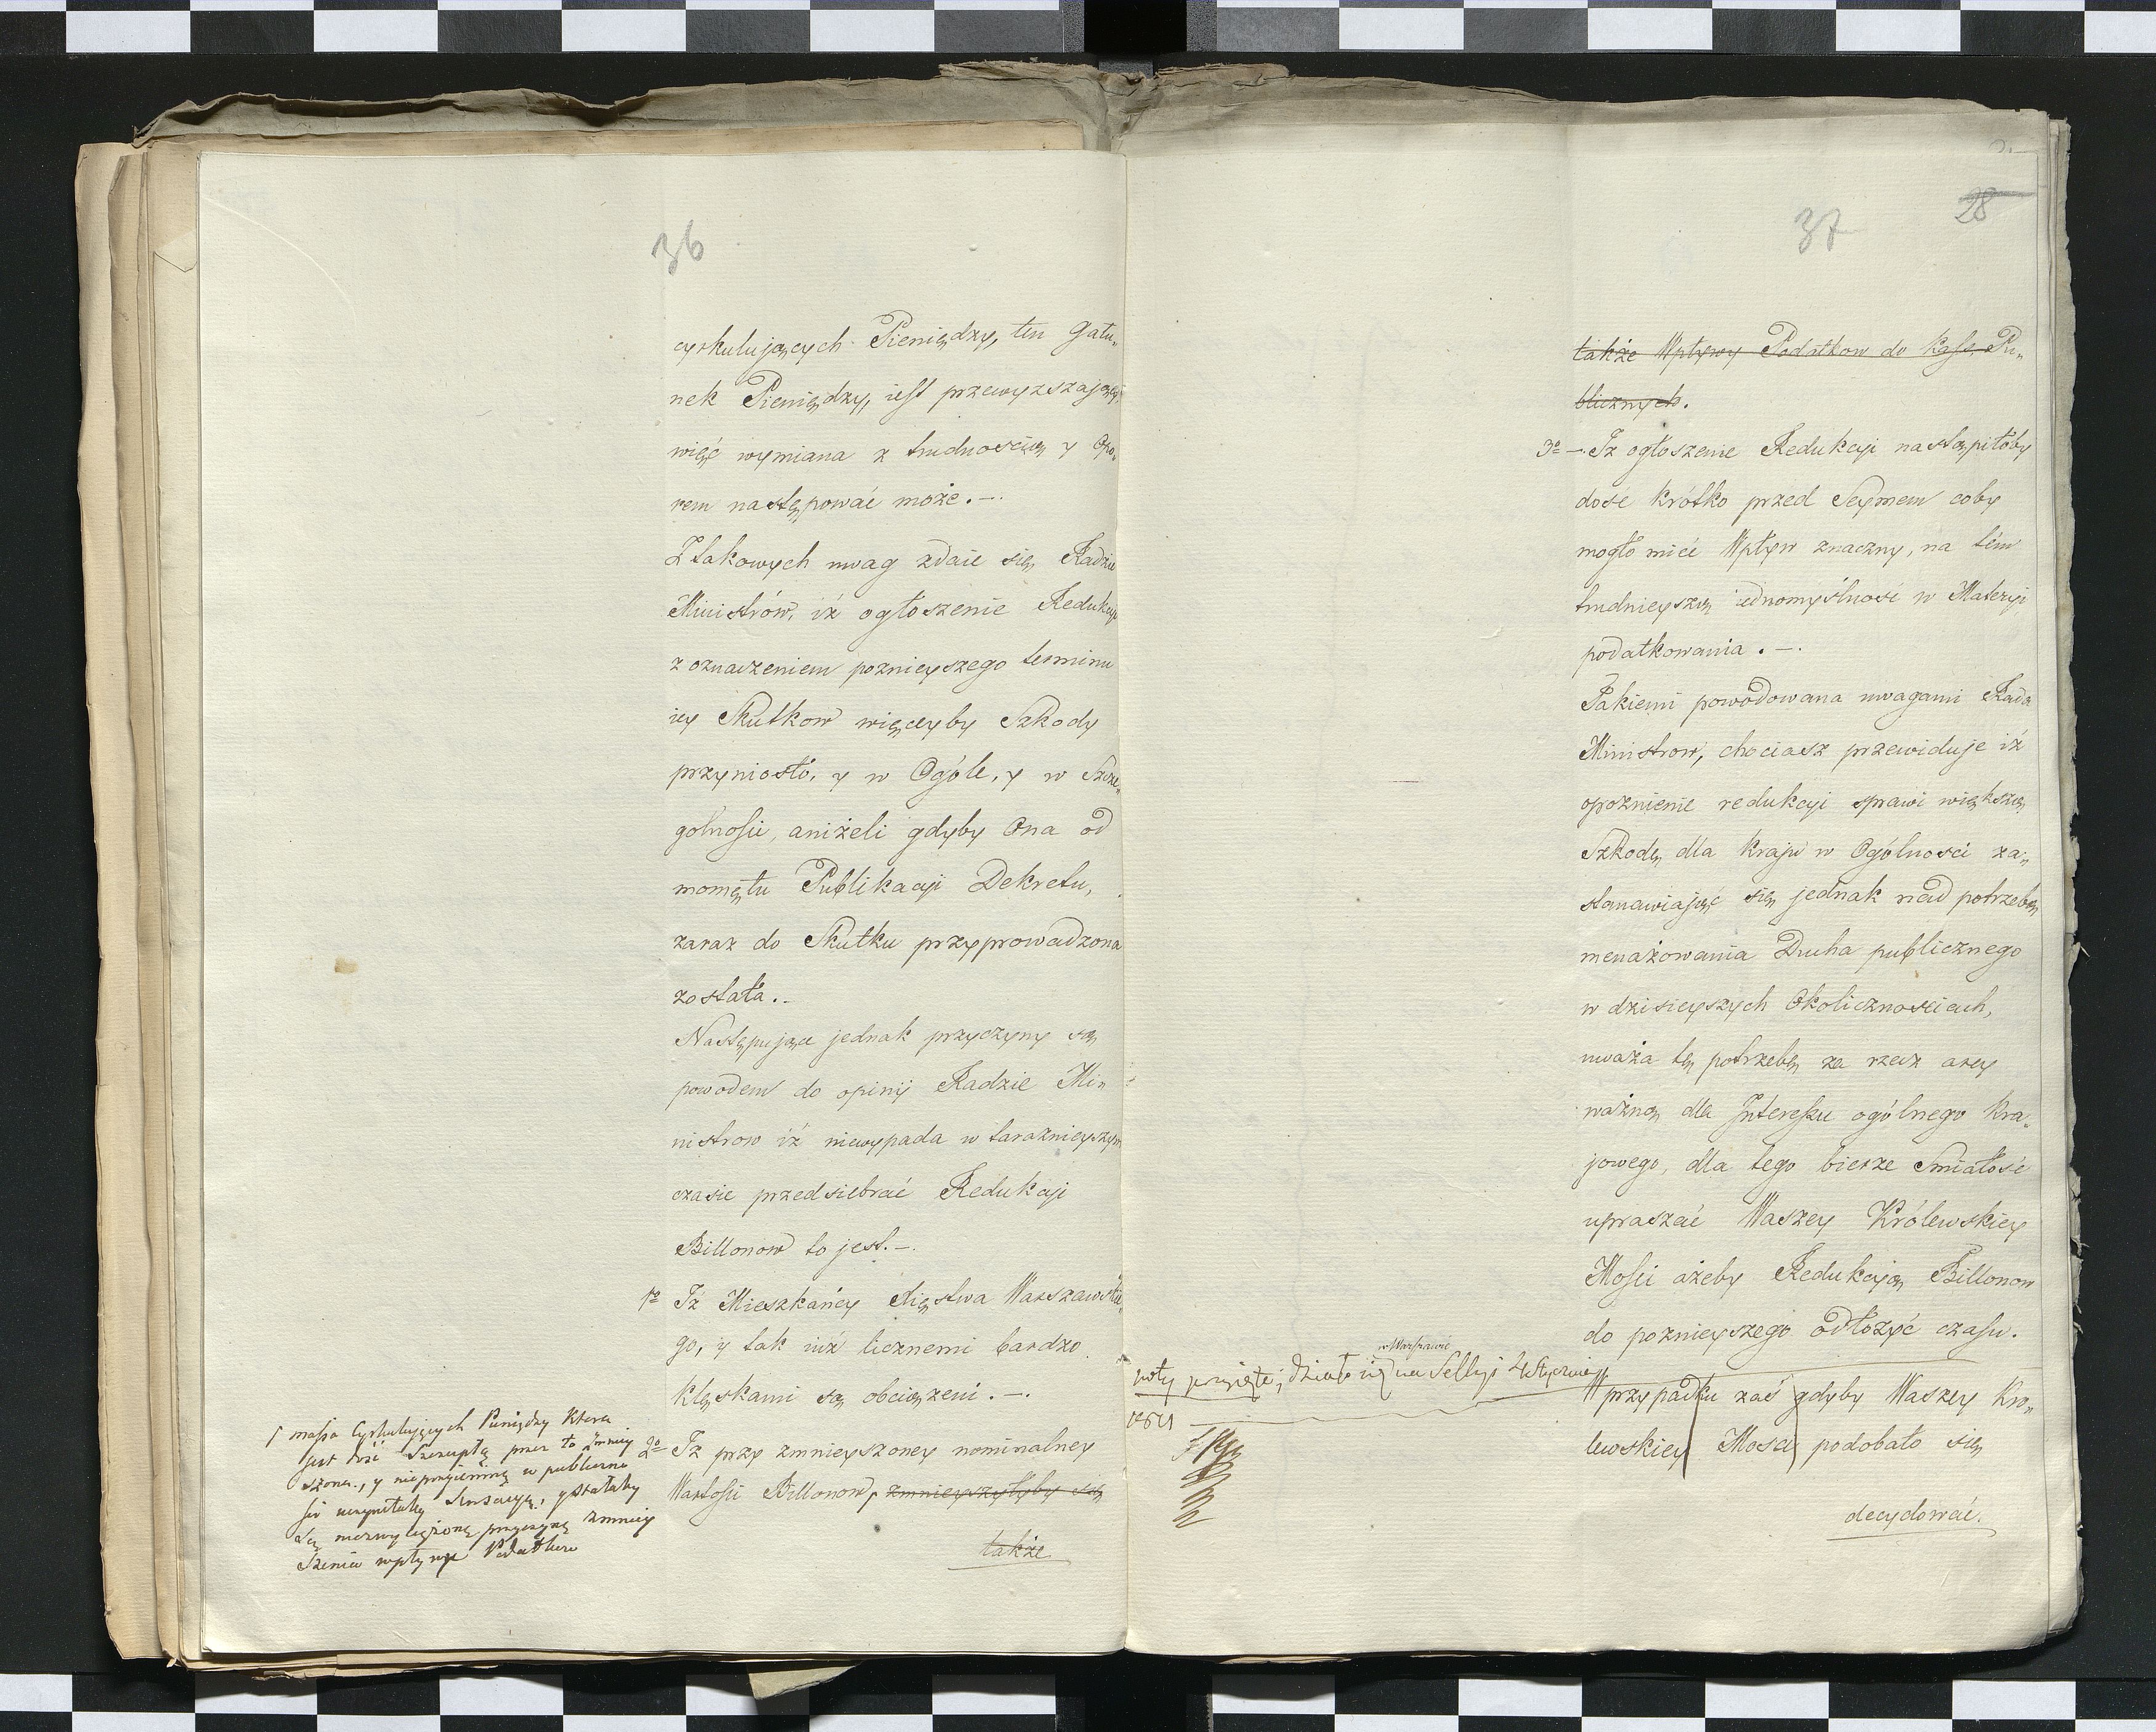 36
cyrkulujących Pieniędzy, ten Gatu„
nek Pieniędzy, iest przewyższający,
więc wymiana z trudnością y Opo„
rem następować może. —.
Z takowych uwag zdaie się Radzie
Ministrów, iż ogłoszenie Redukcyi
z oznaczeniem poznieyszego terminu
iey Skutkow więceyby Szkody
przyniosło, y w Ogóle, y w Szcze„
golności, aniżeli gdyby Ona od
momętu Publikacyi Dekretu,
zaraz do Skutku przyprowadzona
została. _
Następujące jednak przyczyny są
powodem do opinij Radzie Mi„
nistrow iż niewypada w taraznieyszym
czasie przedsiebrać Redukcyi
Billonow to jest. —.
1o Iż Mieszkańcy Xięstwa Warszawskie„
go, y tak iuż licznemi bardzo
klęskami są obciążeni. —.
2o Iż przy zmnieyszoney nominalney
Wartości Billonow, zmnieyszyłyby się
także
massa Cyrkulujących Pieniędzy która
jest dość Szczupłą przez to zmniey
szona, y nieprzyiemną w publiczno
ści uczyniłaby Sensacyę, y stałaby
się niezwyciężoną przyczyną zmniey
szenia wpływu Podatków
37
28
także Wpływy Podatkow do Kass Pu„
blicznych.
3o — Iż ogłoszenie Redukcyi nastąpiłoby
dość krótko przed Seymem coby
mogło mieć Wpływ znaczny, na tém
trudnieyszą iednomyślność w Materyi
podatkowania. —.
Takiemi powodowana uwagami Rada
Ministrow, chociasz przewiduje iż
opoznienie redukcyi sprawi większą
Szkodę dla kraju w Ogólności za„
stanawiając się jednak nad potrzebą
menażowania Ducha publicznego
w dzisieyszych Okolicznościach,
uważa tę potrzebę za rzecz arcy
ważną dla Interessu ogólnego kra„
jowego, dla tego bierze Smiałość
upraszać Waszey Królewskiey
Mości ażeby Redukcyą Billonow
do poznieyszego odłożyć czasu.
w Warszawie
noty przyięte; działo się na Sessyi 4 Stycznia
1811
W przypadku zaś gdyby Waszey Kro„
lewskiey Mości podobało się
decydować.